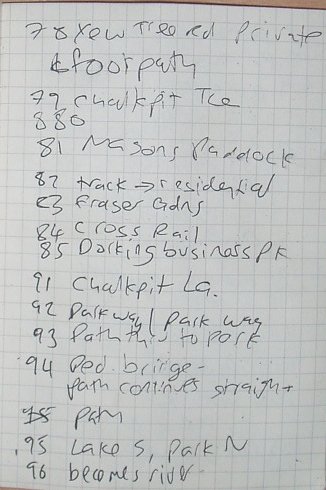 78 Yew Tree rd Private
& footpath
79 Chalkpit Tce
880
81 Masons Paddock
82 track → residential
83 Fraser Gdns
84 Cross Rail
85 Dorking business Pk
91 Chalkpit La.
92 Parkway / Park way
93 Path thru to park
94 Ped bridge -
path continues straight
95 path
.95 Lake S, Park N
96 becomes river